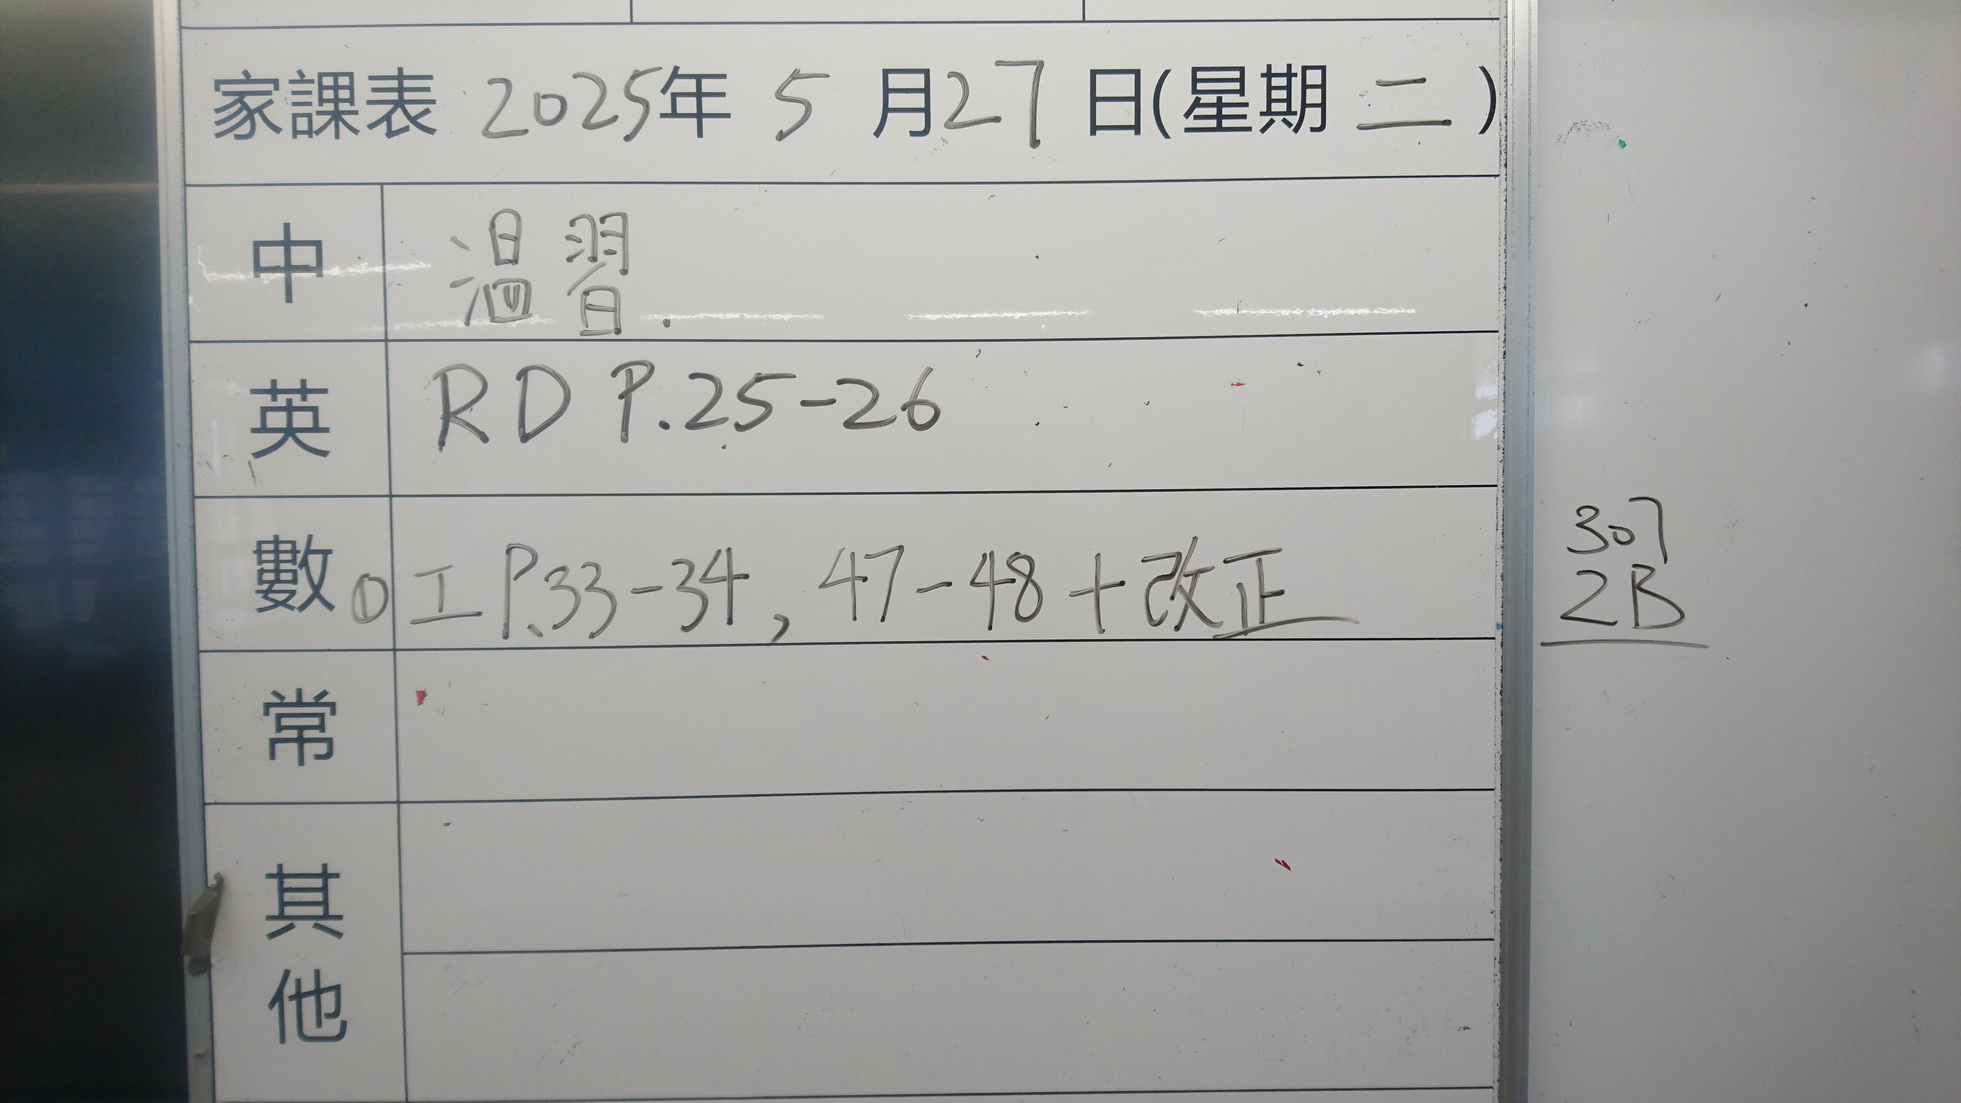 家課表 2025年 5 月27日(星期 二 )
中 溫習.
英 RD P.25-26
數 ① 工 P.33-34, 47-48 + 改正
常
其他
307
2B